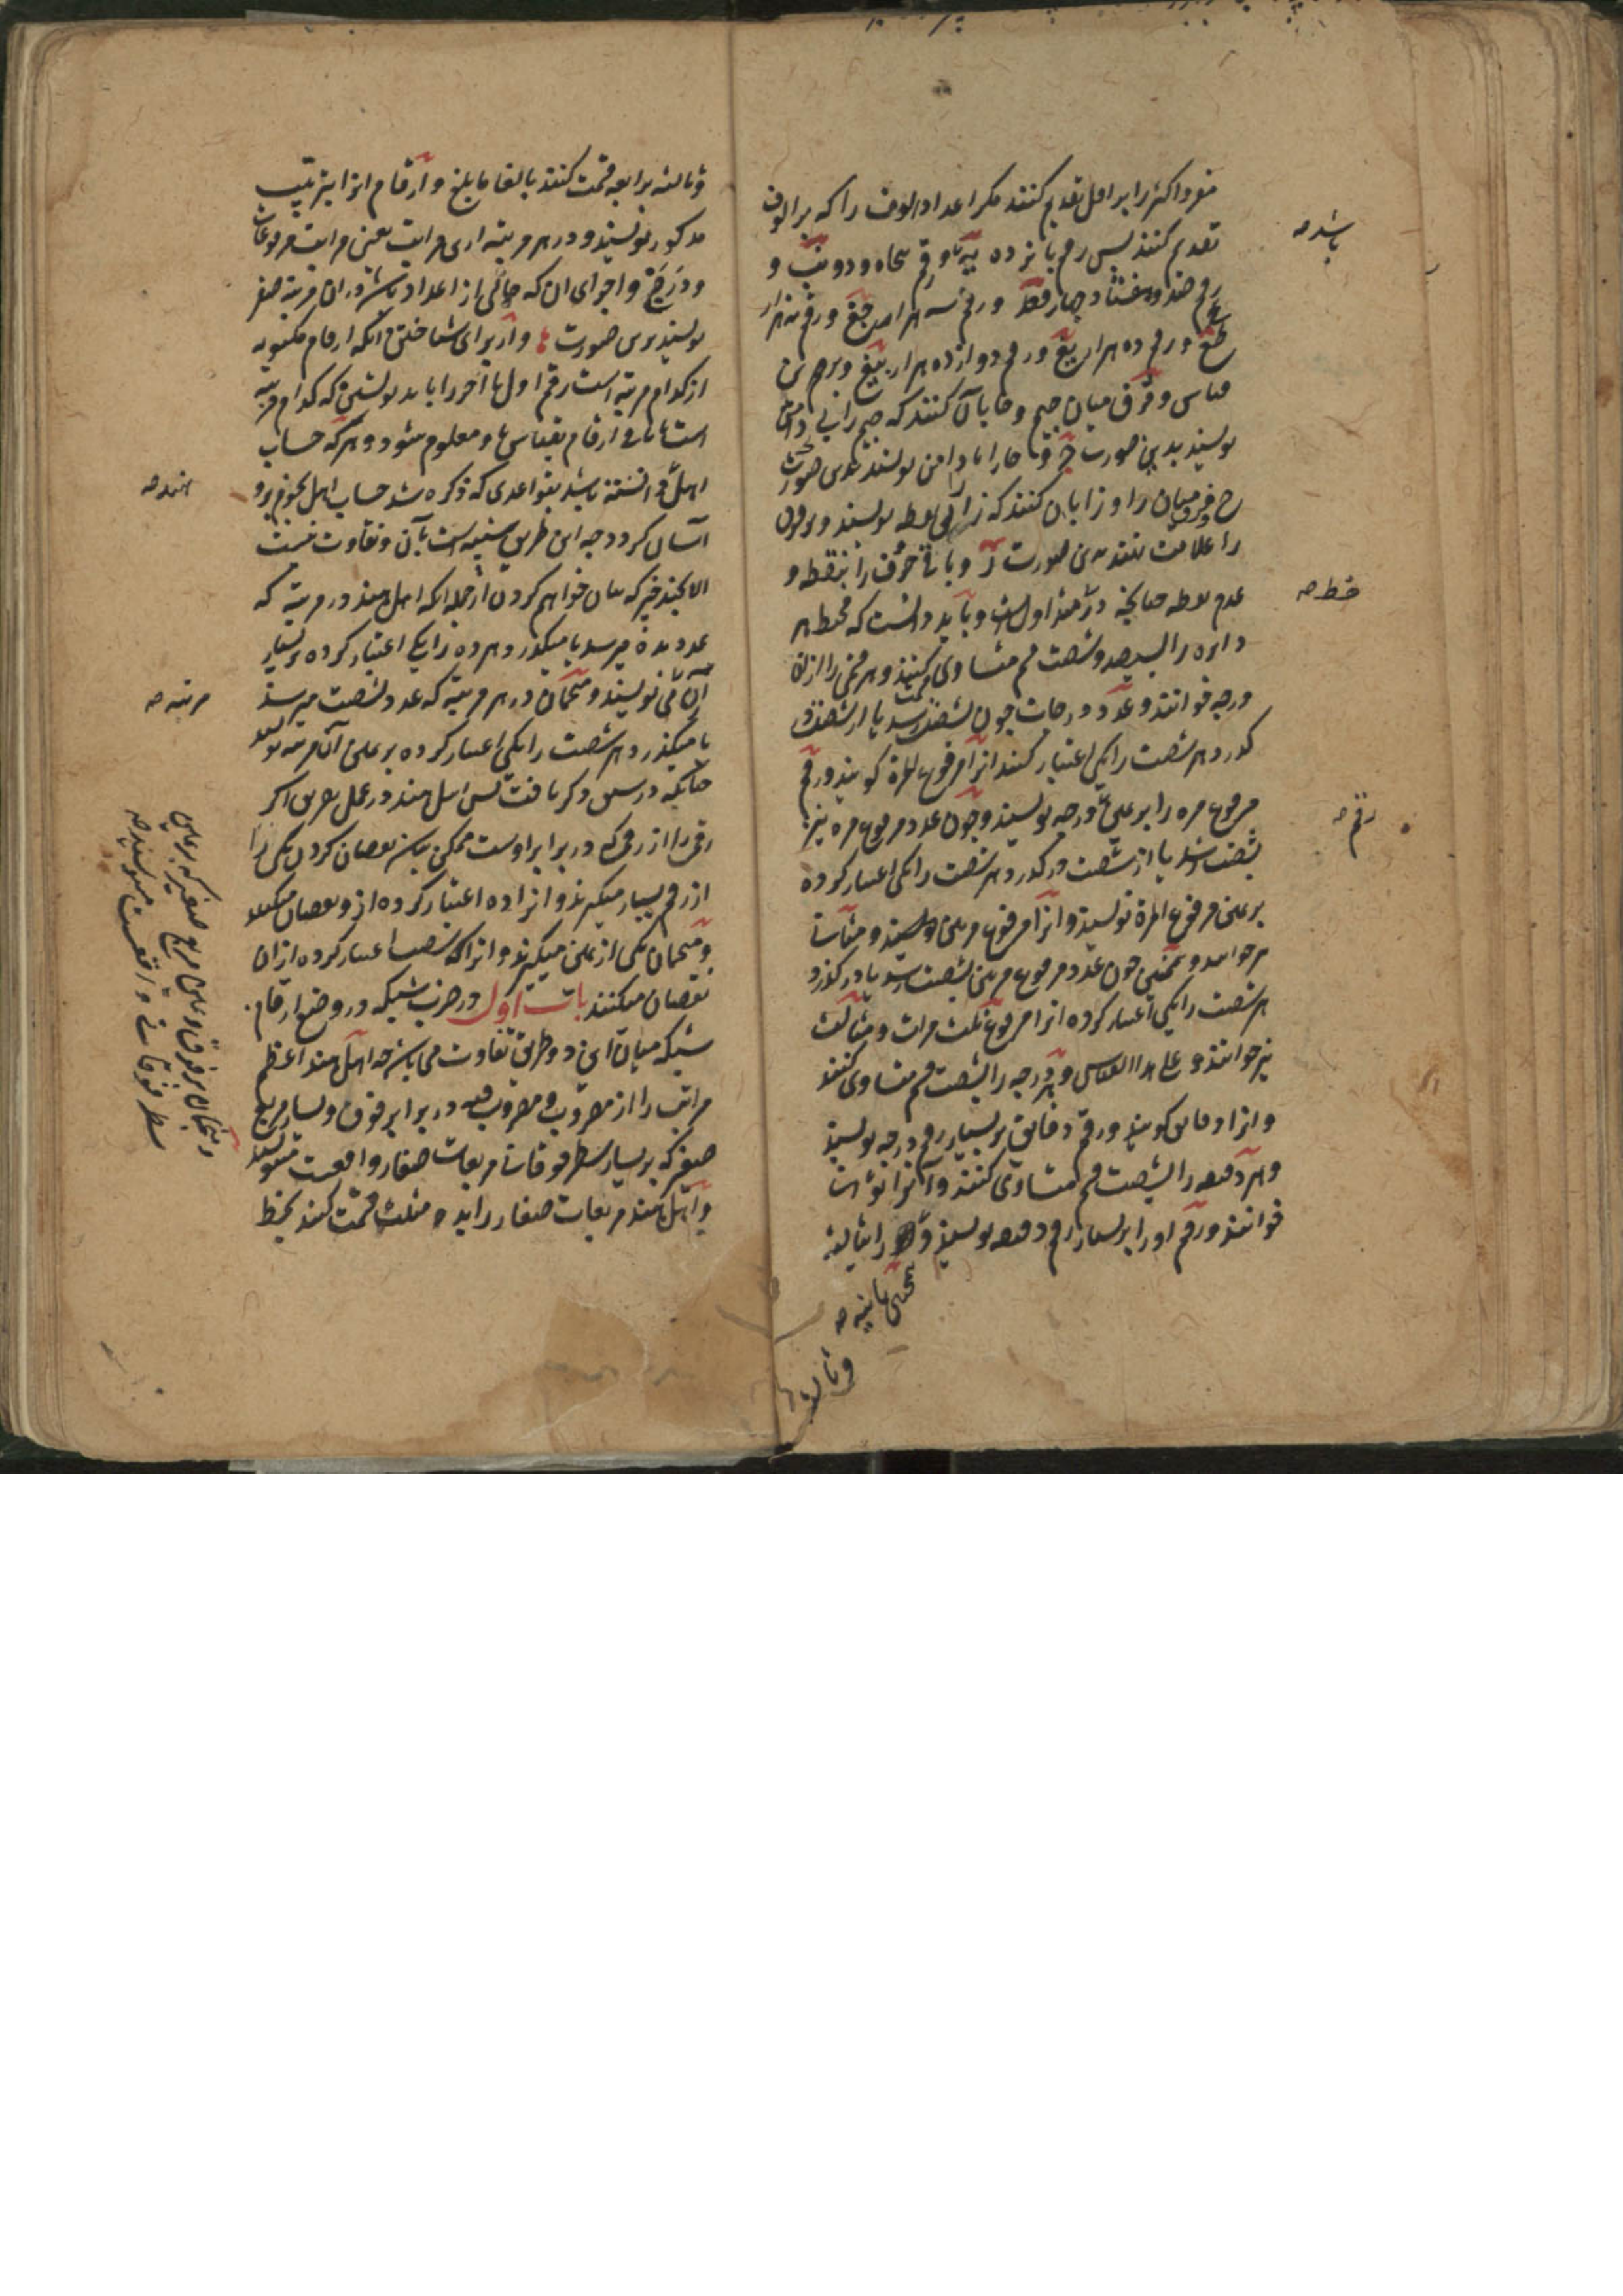 مفرد اکثر را بر اقل تقدیم کنند مکر اعداد الوف را که بر الوف
تقدیم کنند پس رقم پانزده یه و رقم پنجاه و دو نب و
رقم صد و هشتاد و چهار قفد و رقم سه هزار جغ و رقم نه هزار
طغ و رقم ده هزار یغ و رقم دوازده هزار یبغ و برین
قیاس و فرق میان جیم و حا بآن کنند که جیم را بی دامن
نویسند بدین صورت و حا را با دامن نویسند بدین صورت
ح و فرق میان را و زا بآن کنند که زا بی نقطه نویسند و بر فوق
را علامت نهند بدین صورت ر و باقی حروف را بنقطه و
عدم نقطه چنانچه در هند اول است و باید دانست که محیط هر
دایره را بسیصد و شصت قسم مساوی کنند و هر قسمی را از آن
درجه خوانند و عدد درجات چون بشصت رسد یا از شصت
کذرد هر شصت را یکی اعتبار کنند آنرا مرفوع المرة کویند و رقم
مرفوع مره را بر یمین درجه نویسند و چون عدد مرفوع مره نیز
بشصت رسد یا از شصت درکذرد هر شصت را یکی اعتبار کرده
بر یمین مرفوع المرة نویسند و آنرا مرفوع مرتین نویسند و مثانی
خوانند و همچنین چون عدد مرفوع مرتین بشصت رسد یا درکذرد
هر شصت را یکی اعتبار کرده آنرا مرفوع ثلث مرات و مثالث
نیز خوانند و علی هذا القیاس و هر درجه را بشصت قسم مساوی کنند
و آنرا دقایق کویند و رقم دقایق بر یسار رقم درجه نویسند
و هر دقیقه را بشصت قسم مساوی کنند و آنرا ثوانی
خوانند و رقم او را بر یسار رقم دقیقه نویسند و را بثالثه
همچنین ثانیه صه
و ثالثه
باشد صه
خط صه
رقم صه
و ثالثه برابعه قسمت کنند بالغا ما بلغ و ارقام آنرا بترتیب
مذکور نویسند و در هر مرتبه ازین مراتب یعنی مراتب مرفوعات
و درج و اجزای آن که خالی از اعداد باشد در آن مرتبه صفر
نویسند برین صورت و از برای شناختن آنکه ارقام مکتوبه
از کدام مرتبه است رقم اول یا آخر را باید نوشتن که کدام مرتبه
است تا باقی ارقام بقیاس او معلوم شود و هر که حساب
اهل دانسته باشد بقواعدی که ذکر کرده شد حساب اهل نجوم برو
آسان کردد چه این طریق شبیه است بآن و تفاوت نیست
الا بچند چیز که بیان خواهم کردن از جمله آنکه اهل هند در مرتبه که
عدد بده میرسد یا میکذرد هر ده را یکی اعتبار کرده بر یسار
آن می نویسند و منجمان در هر مرتبه که عدد بشصت میرسد
یا میکذرد هر شصت را یکی اعتبار کرده بر یمین آن مرتبه نویسند
چنانکه در پیش ذکر یافت پس اهل هند در عمل تفریق اکر
رقمی را از رقمی که در برابر اوست ممکن نباشد نقصان کردن یکی را
از رقم یسار میکیرند و آنرا ده اعتبار کرده از و نقصان میکنند
و منجمان یکی از یمین میکیرند و آنرا شصت اعتبار کرده از آن
نقصان میکنند باب اول در ضرب شبکه در وضع ارقام
شبکه میان این دو طریق تفاوت می باشد چه اهل هند اعظم
مراتب را از مضروب و مضروب فیه در برابر فوق و یسار مربع
صغیر که بر یسار سطر فوقانی مربعات صغار واقعست مینویسند
و اهل هند مربعات صغار را بدو مثلث قسمت کنند بخط
هند صه
مرتبه صه
و منجمان بر فوق و یمین مربع صغیر که بر یمین
سطر فوقانی واقعست مینویسند صه